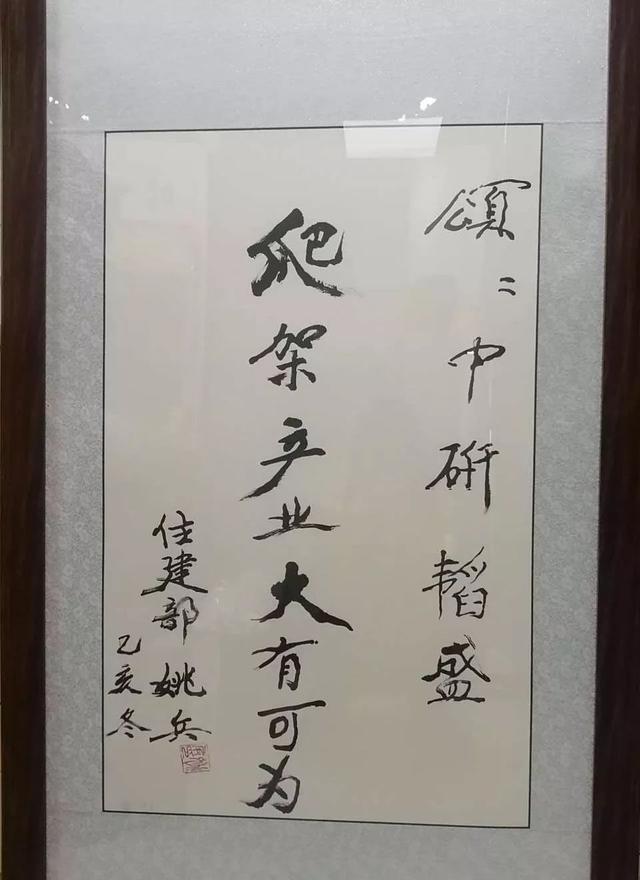 頌：中研韬盛
爬架产业大有可为
住建部 姚兵
己亥冬